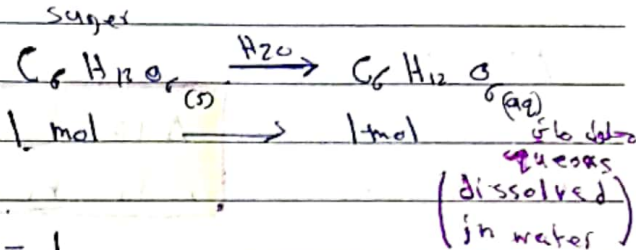 suger
C₆ H₁₂ O₆ (s) H2O → C₆ H₁₂ O₆ (aq)
1 mol → 1 mol
queous
(dissolved
in water)